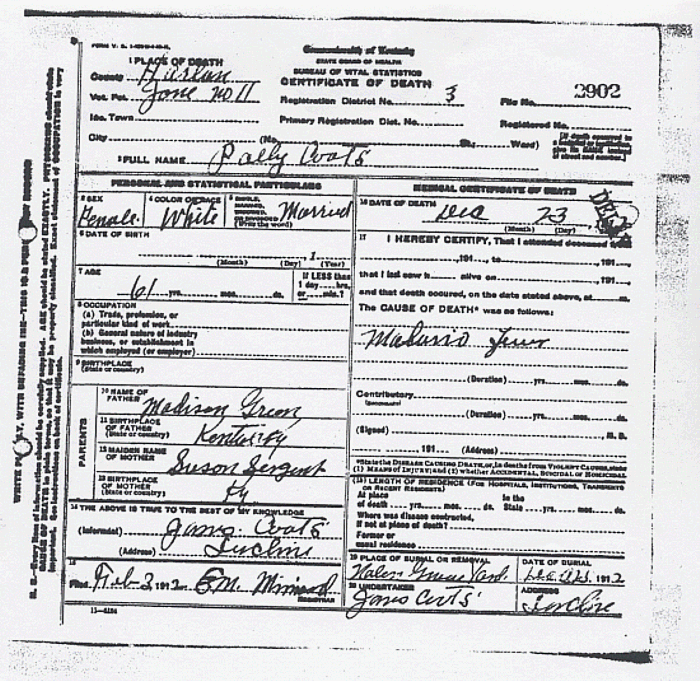 FORM V. S.
Commonwealth of Kentucky
STATE BOARD OF HEALTH
BUREAU OF VITAL STATISTICS
CERTIFICATE OF DEATH
1 PLACE OF DEATH
County Harlan
Vot. Pct. Jane no 11
Inc. Town
City (No. St.; Ward)
Registration District No. 3
Primary Registration Dist. No.
File No. 2902
Registered No.
[If death occurred in a hospital or institution give its NAME instead of street and number.]
2 FULL NAME Polly Coots
PERSONAL AND STATISTICAL PARTICULARS
3 SEX Female
4 COLOR OR RACE White
5 SINGLE, MARRIED, WIDOWED, OR DIVORCED (Write the word) Married
6 DATE OF BIRTH
, 1
(Month) (Day) (Year)
7 AGE
61 yrs. mos. ds.
If LESS than
1 day hrs.
or min.?
8 OCCUPATION
(a) Trade, profession, or
particular kind of work
(b) General nature of industry
business, or establishment in
which employed (or employer)
9 BIRTHPLACE
(State or country)
PARENTS
10 NAME OF
FATHER Madison Green
11 BIRTHPLACE
OF FATHER
(State or country) Kentucky
12 MAIDEN NAME
OF MOTHER Suson Sergent
13 BIRTHPLACE
OF MOTHER
(State or country) Ky
14 THE ABOVE IS TRUE TO THE BEST OF MY KNOWLEDGE
(Informant) James Coots
(Address)
15
Filed Feb 3 1912
REGISTRAR
11-6184
MEDICAL CERTIFICATE OF DEATH
16 DATE OF DEATH Dec 23
(Month) (Day)
17 I HEREBY CERTIFY, That I attended deceased from
, 191 , to , 191 ,
that I last saw h alive on , 191 ,
and that death occured, on the date stated above, at m.
The CAUSE OF DEATH* was as follows:
Malario Fever
(Duration) yrs. mos. ds.
Contributory
(Secondary)
(Duration) yrs. mos. ds.
(Signed) , M. D.
, 191 (Address)
*State the DISEASE CAUSING DEATH, or, in deaths from VIOLENT CAUSES, state
(1) MEANS OF INJURY; and (2) whether ACCIDENTAL, SUICIDAL OR HOMICIDAL
18 LENGTH OF RESIDENCE (FOR HOSPITALS, INSTITUTIONS, TRANSIENTS
OR RECENT RESIDENTS)
At place In the
of death yrs. mos. ds. State yrs. mos. ds.
Where was disease contracted,
if not at place of death?
Former or
usual residence
19 PLACE OF BURIAL OR REMOVAL
Grave Yard
DATE OF BURIAL
1912
20 UNDERTAKER
James Coots
ADDRESS
WITH UNFADING INK—THIS IS A PERMANENT RECORD
N. B.—Every item of information should be carefully supplied. AGE should be stated EXACTLY. PHYSICIANS should state
CAUSE OF DEATH in plain terms, so that it may be properly classified. Exact statement of OCCUPATION is very
important. See instructions on back of certificate.